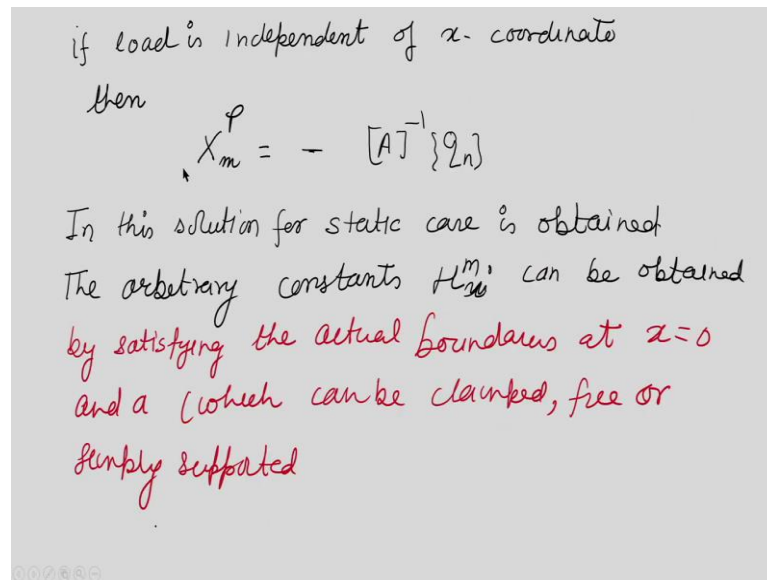 if load is independent of x- coordinate
then
X_m^p = - [A]^{-1} {q_n}
In this solution for static case is obtained
The arbetrary constants can be obtained
by satisfying the actual boundaries at x=0
and a (which can be clamped, free or
simply supported